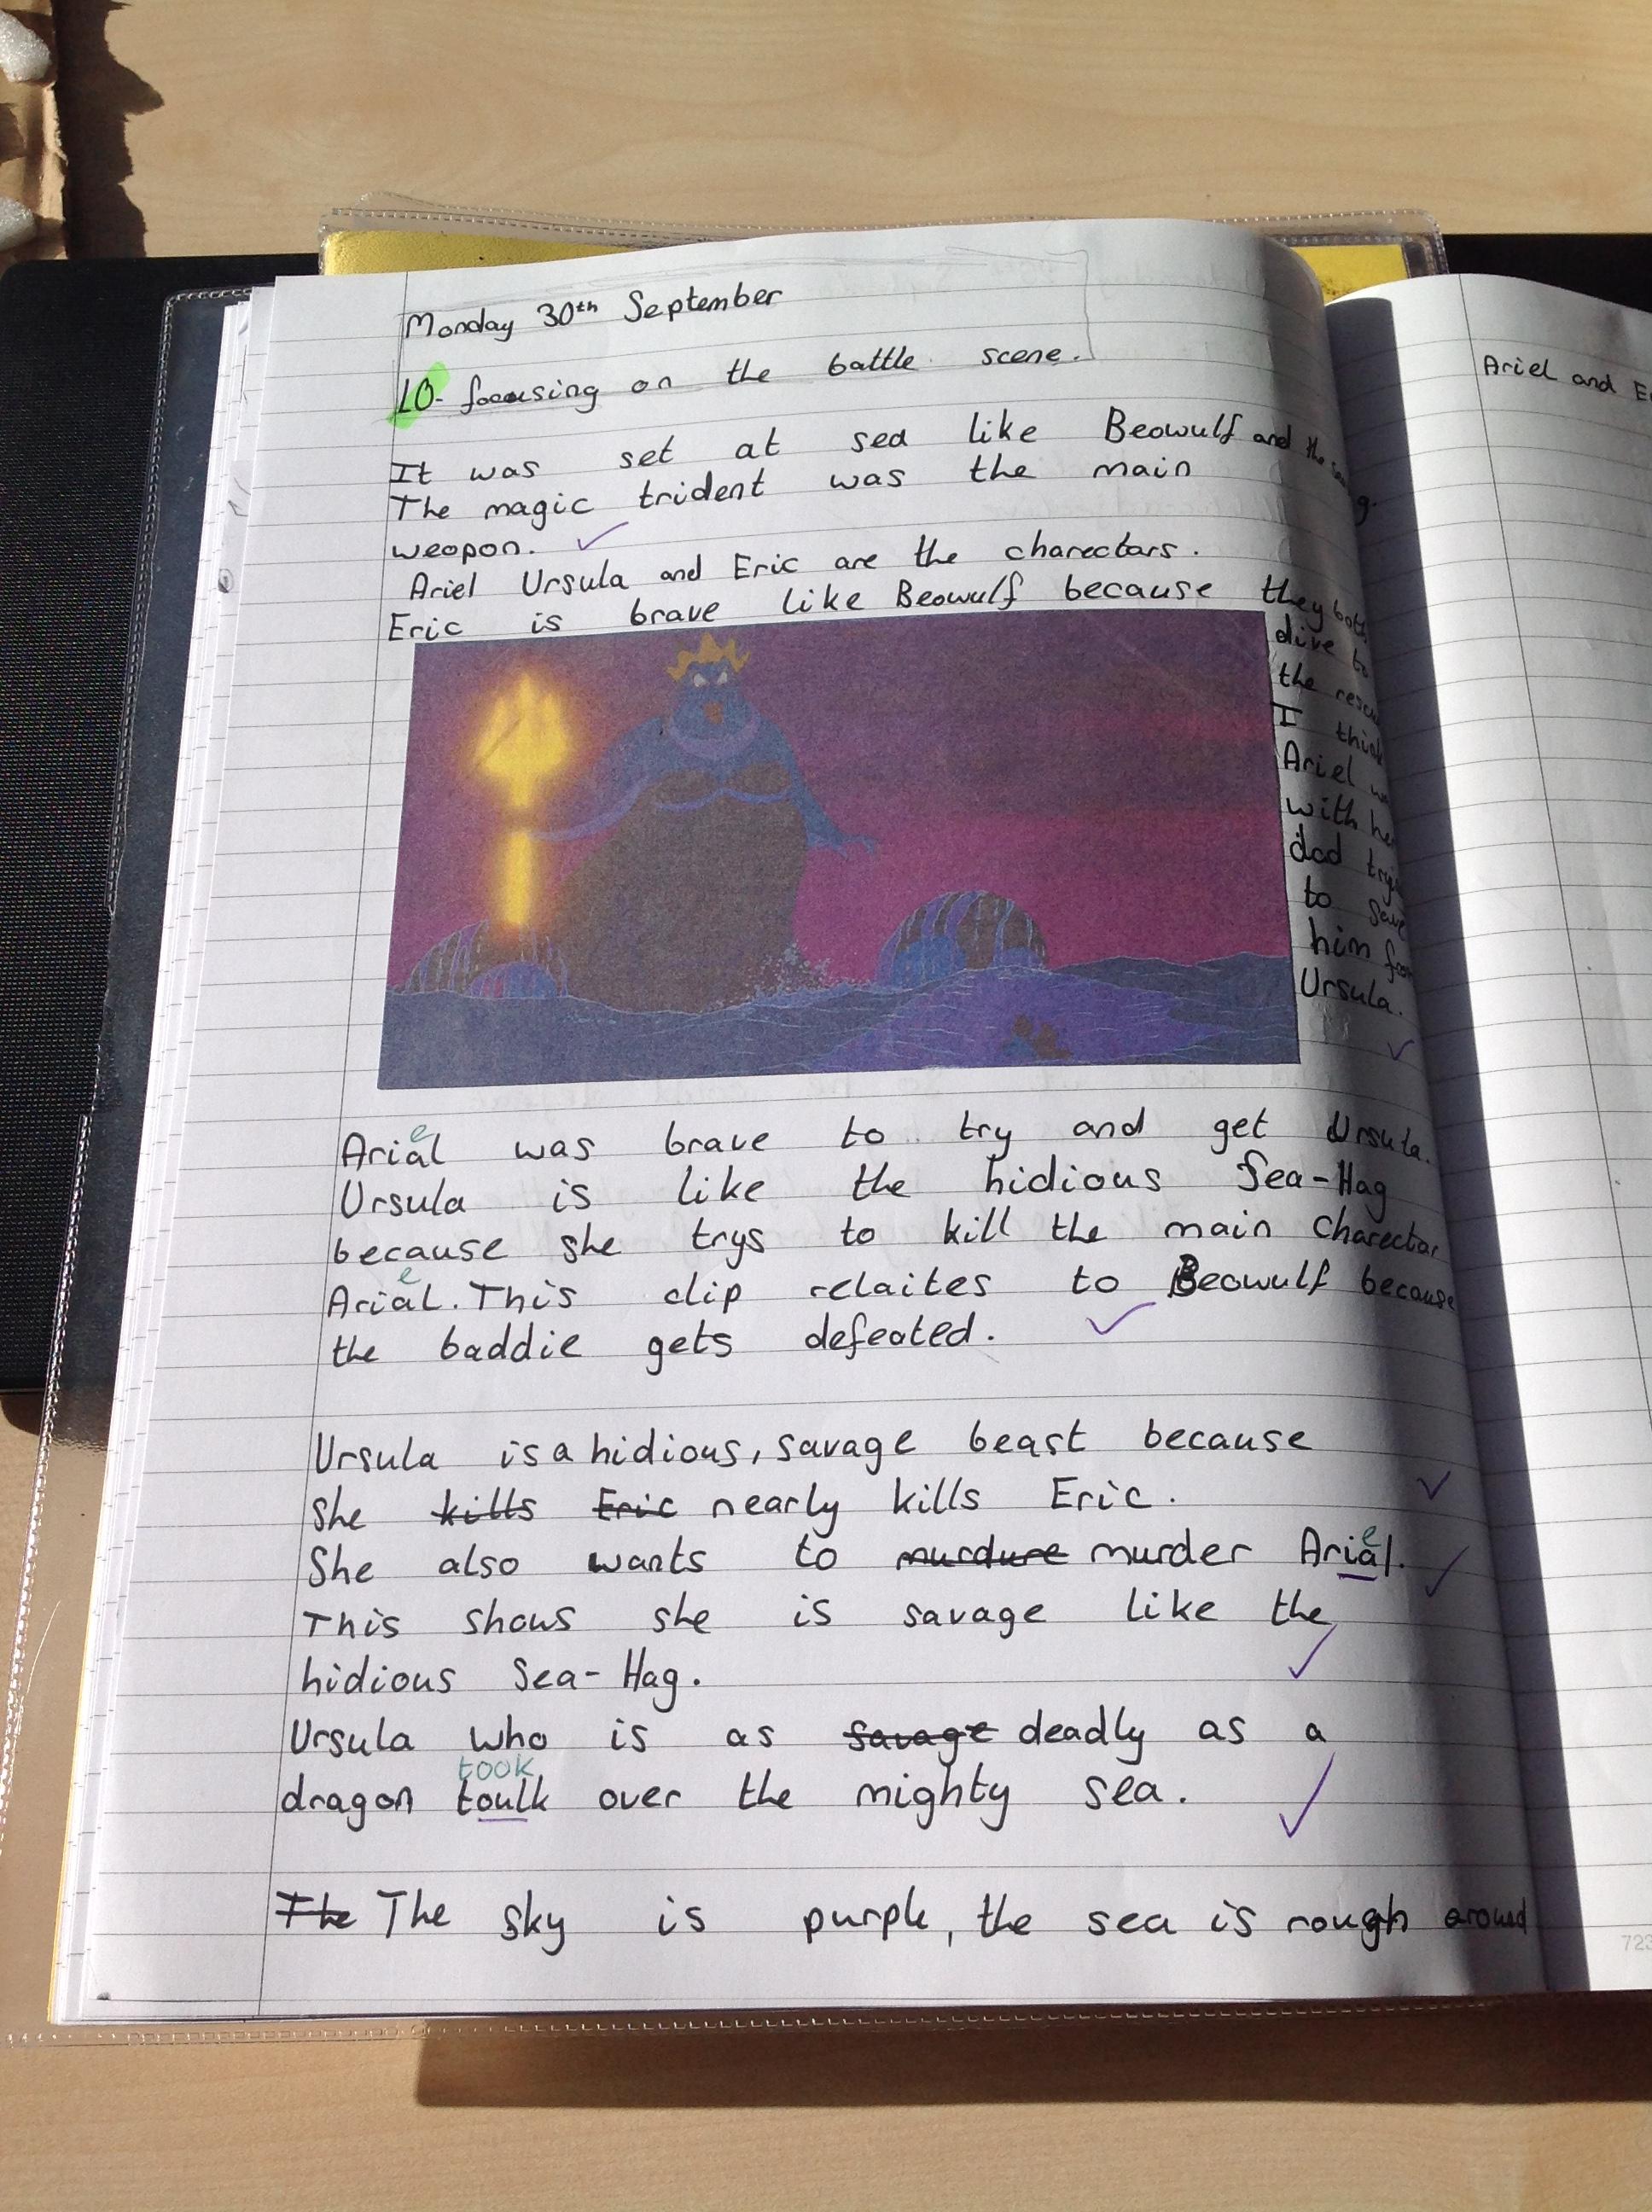 Monday 30th September
LO- focusing on the battle scene.
It was set at sea like Beowulf and the
The magic trident was the main
weapon.
Ariel Ursula and Eric are the charectars.
Eric is brave like Beowulf because they both
dive to
the
I think
Ariel
with her
dad
to save
him from
Ursula.
e
Arial was brave to try and get Ursula.
Ursula is like the hidious Sea-Hag
because she trys to kill the main charectar
e
Arial. This clip relaites to Beowulf because
the baddie gets defeated.
Ursula is a hidious, savage beast because
She kills Eric nearly kills Eric.
e
She also wants to murdure murder Arial.
This shows she is savage like the
hidious Sea-Hag.
Ursula who is as savage deadly as a
took
dragon toulk over the mighty sea.
The The sky is purple, the sea is rough around
Ariel and
723